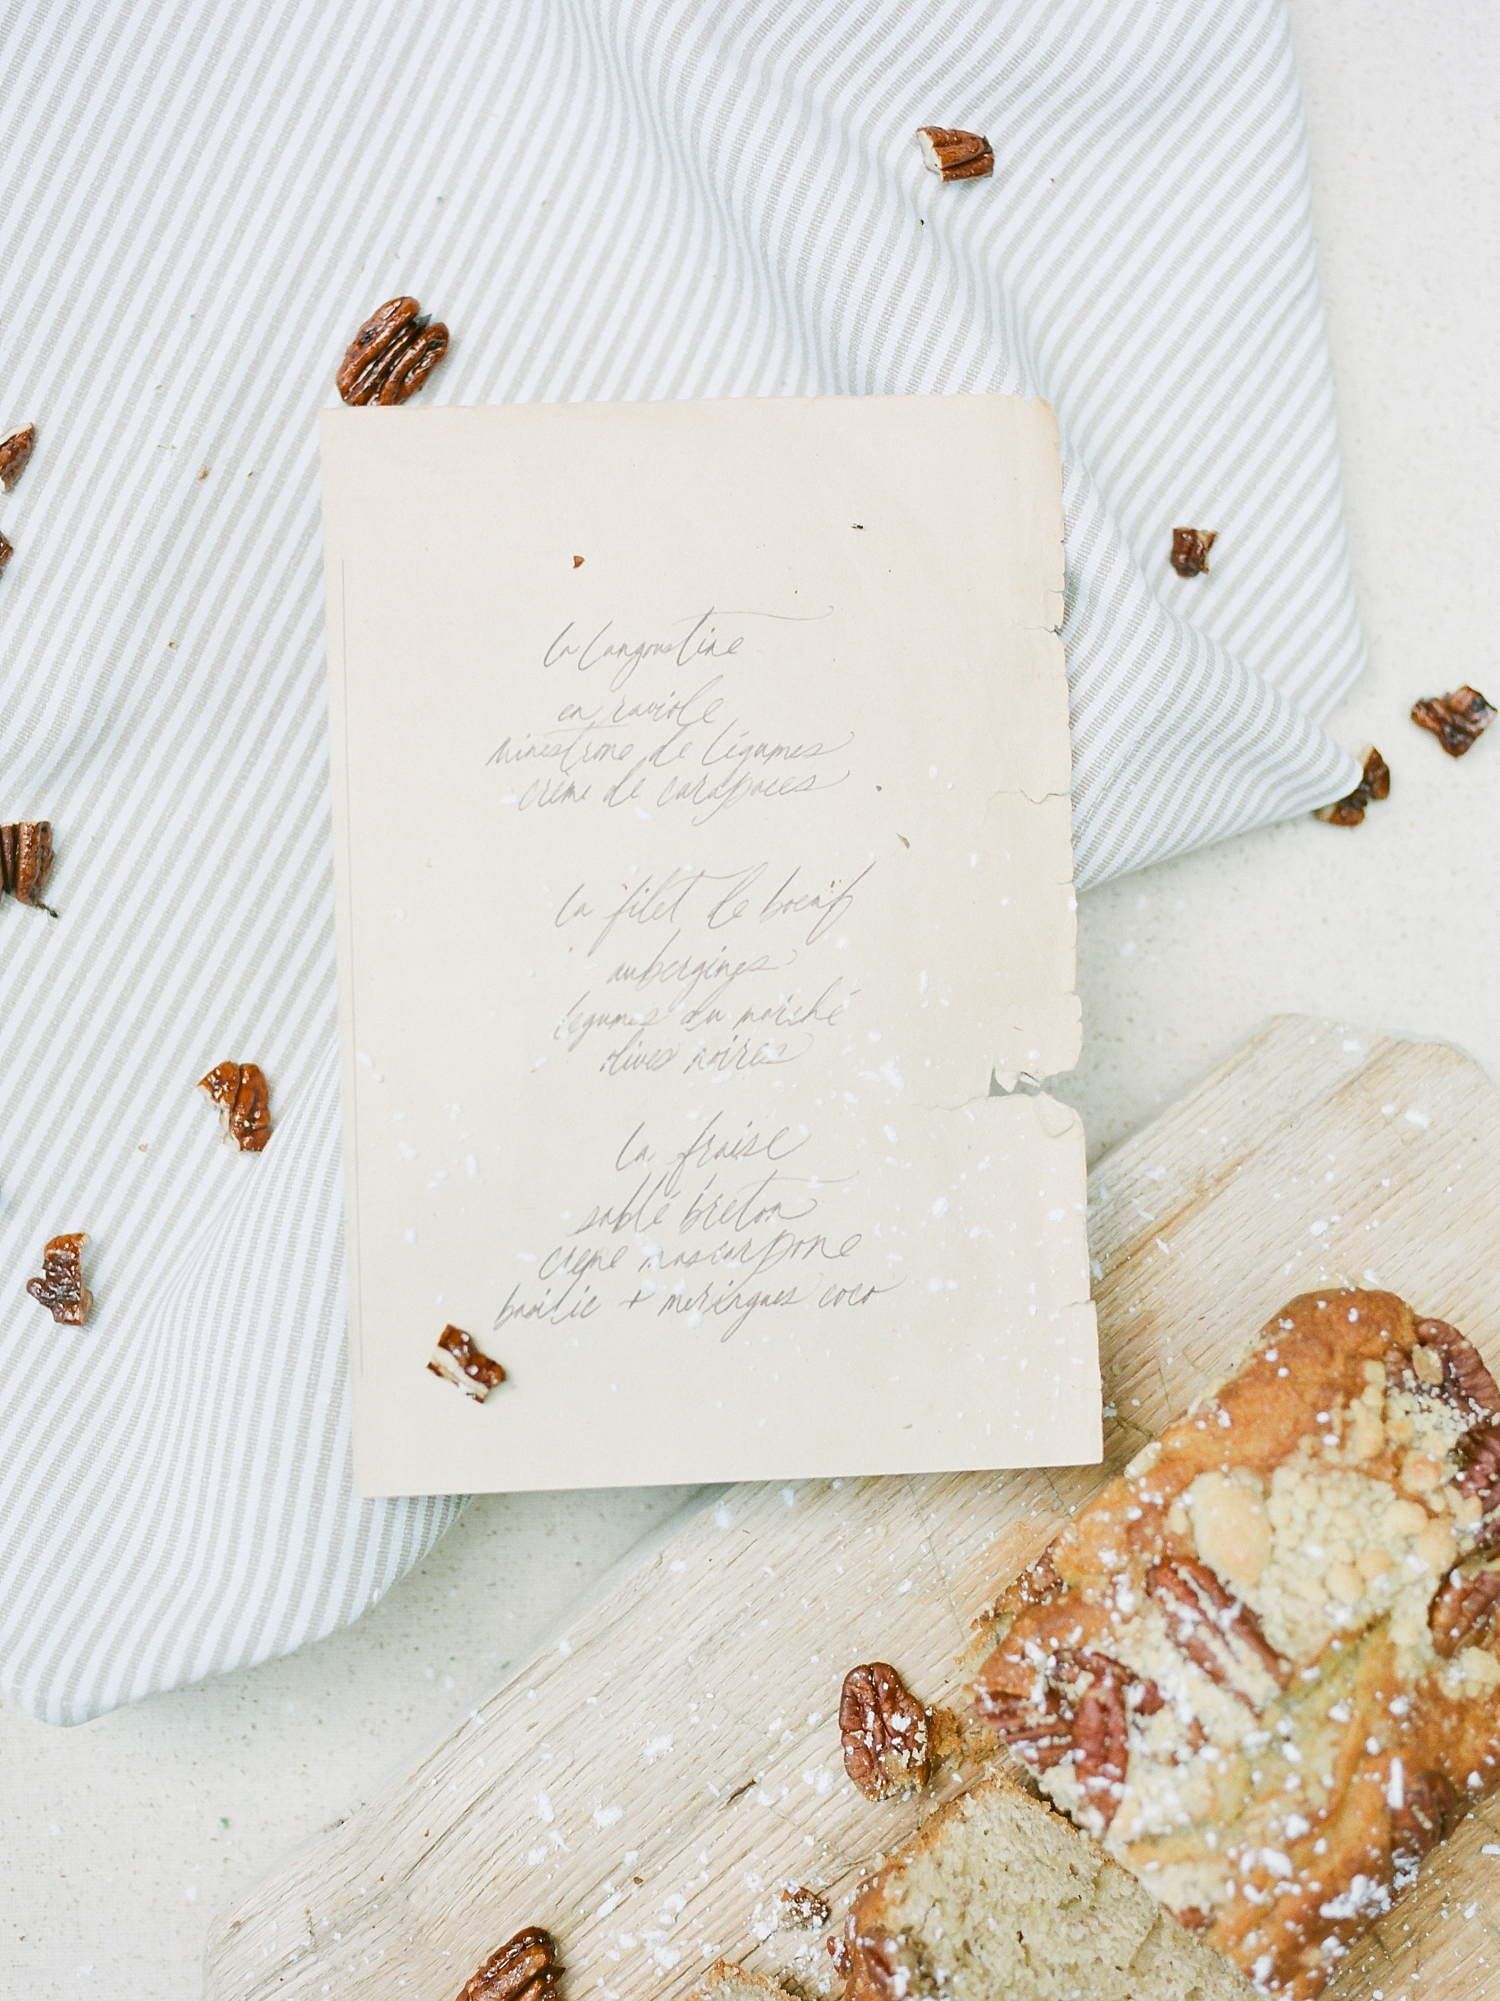 la langoustine
en raviole
minestrone de légumes
crème de carapaces
la filet de boeuf
aubergines
légumes du marché
olives noires
la fraise
sablé breton
crème mascarpone
basilic + meringues coco